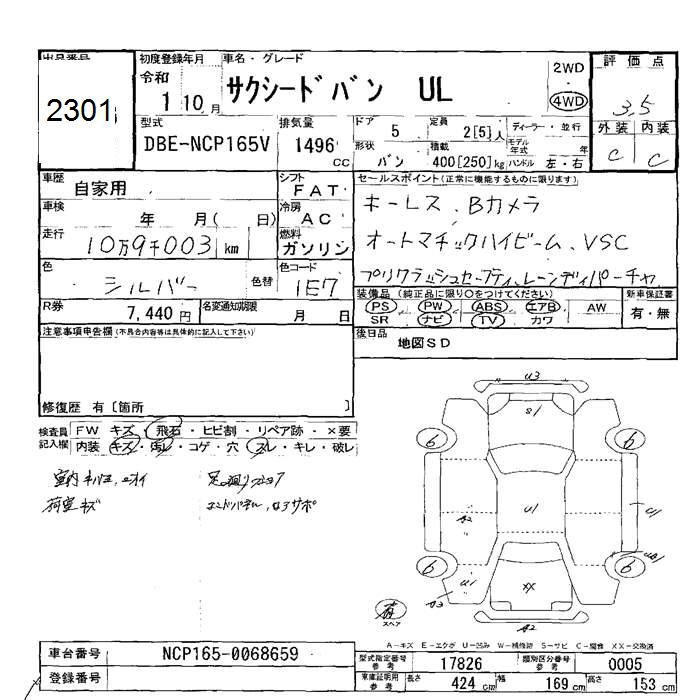 出品番号
2301
初度登録年月
令和
1 10 月
車名・グレード
サクシードバン UL
2WD
4WD
評価点
3.5
外装 内装
C C
型式
DBE-NCP165V
排気量
1496 cc
ドア 5
定員 2[5]人
ディーラー・並行
形状 バン
積載 400[250]kg
モデル年式 年
ハンドル 左・右
車歴 自家用
シフト FAT
車検 年 月( 日)
冷房 AC
走行 10万9千003 km
燃料 ガソリン
色 シルバー 色替
色コード 1E7
R券 7,440円
名変通知期限 月 日
セールスポイント(正常に機能するものに限ります)
キーレス、Bカメラ
オートマチックハイビーム、VSC
プリクラッシュセーフティ、レーンディパーチャ
装備品(純正品に限り○をつけてください)
新車保証書
PS PW ABS エアB AW
SR ナビ TV カワ
有・無
後日品 地図SD
注意事項申告欄(不具合内容等は具体的に記入して下さい)
修復歴 有〔箇所 〕
検査員記入欄
FW キズ・飛石・ヒビ割・リペア跡・×要
内装 キズ・汚レ・コゲ・穴・スレ・キレ・破レ
荷室キズ
U3
S1
6
6
U1
A2
C1
6
6
U1
XX
A3
A2
有
スペア
A-キズ E-エクボ U-凹み W-補修跡 S-サビ C-腐食 XX-交換済
車台番号 NCP165-0068659
登録番号
型式指定番号 参考 17826
類別区分番号 参考 0005
車庫証明用 参考
長さ 424 cm
幅 169 cm
高さ 153 cm